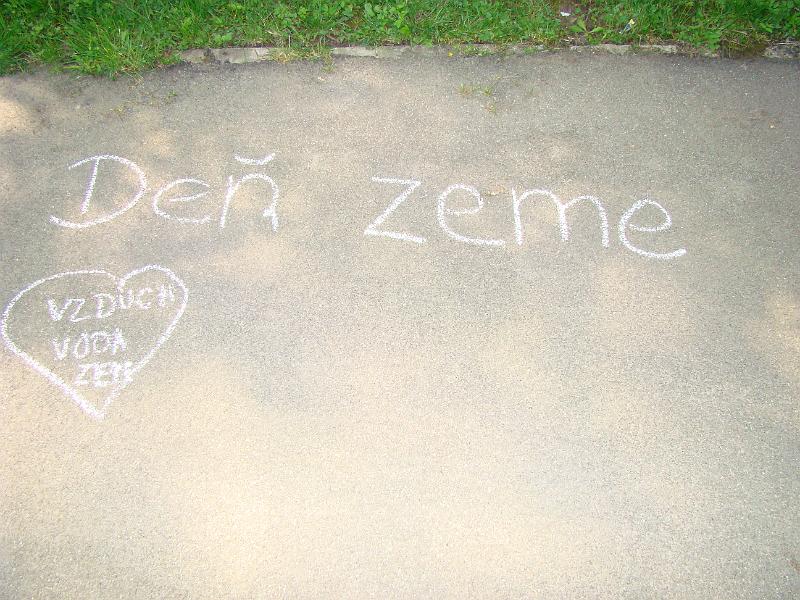 Deň zeme
VZDUCH
VODA
ZEM